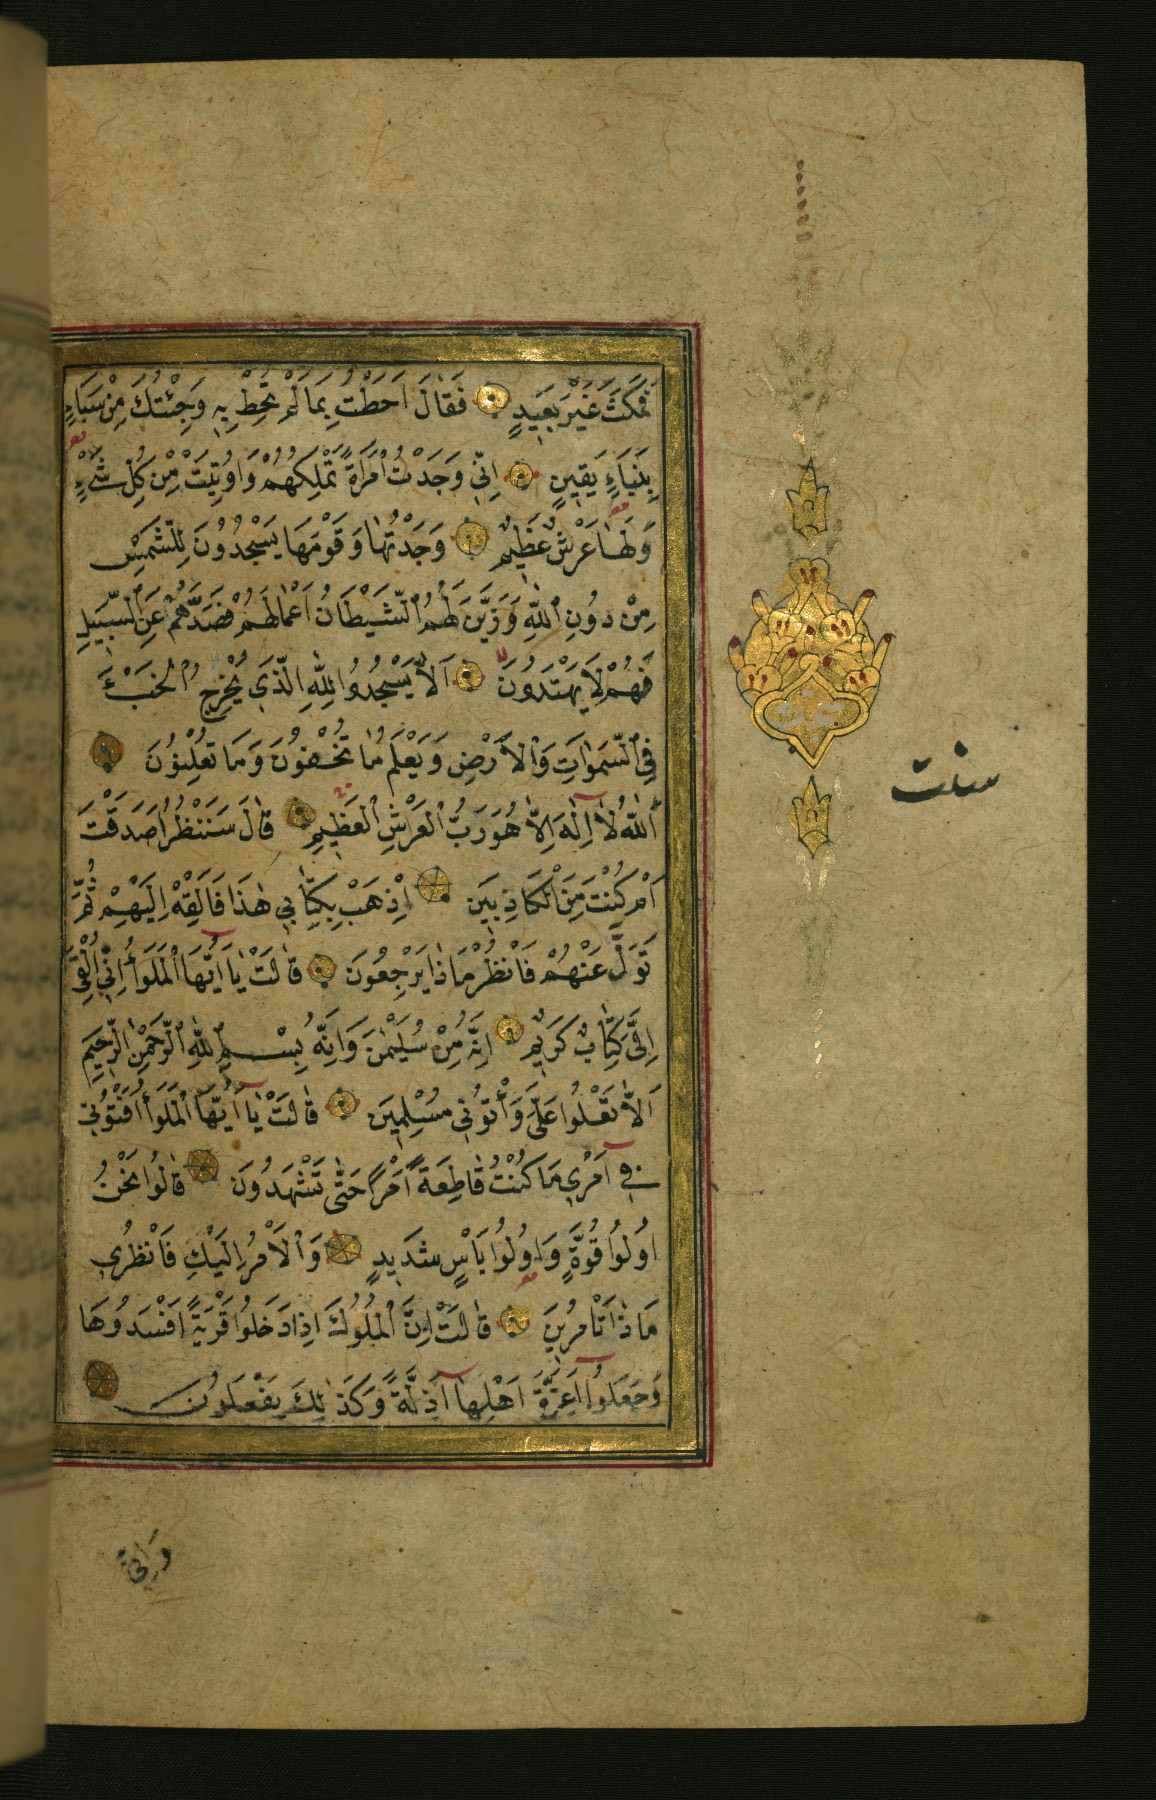 فَمَكَثَ غَيْرَ بَعِيدٍ فَقَالَ اَحَطْتُ بِمَا لَمْ تُحِطْ بِهِ وَجِئْتُكَ مِنْ سَبَاءٍ
بِنَبَاءٍ يَقِينٍ اِنِّي وَجَدْتُ امْرَاَةً تَمْلِكُهُمْ وَاُوتِيَتْ مِنْ كُلِّ شَيْءٍ
وَلَهَا عَرْشٌ عَظِيمٌ وَجَدْتُهَا وَقَوْمَهَا يَسْجُدُونَ لِلشَّمْسِ
مِنْ دُونِ اللّٰهِ وَزَيَّنَ لَهُمُ الشَّيْطَانُ اَعْمَالَهُمْ فَصَدَّهُمْ عَنِ السَّبِيلِ
فَهُمْ لَا يَهْتَدُونَ اَلَّا يَسْجُدُوا لِلّٰهِ الَّذِي يُخْرِجُ الْخَبْءَ
فِي السَّمٰوَاتِ وَالْاَرْضِ وَيَعْلَمُ مَا تُخْفُونَ وَمَا تُعْلِنُونَ
اَللّٰهُ لَا اِلٰهَ اِلَّا هُوَ رَبُّ الْعَرْشِ الْعَظِيمِ قَالَ سَنَنْظُرُ اَصَدَقْتَ
اَمْ كُنْتَ مِنَ الْكَاذِبِينَ اِذْهَبْ بِكِتَابِي هٰذَا فَاَلْقِهْ اِلَيْهِمْ ثُمَّ
تَوَلَّ عَنْهُمْ فَانْظُرْ مَاذَا يَرْجِعُونَ قَالَتْ يَا اَيُّهَا الْمَلَؤُا اِنِّي اُلْقِيَ
اِلَيَّ كِتَابٌ كَرِيمٌ اِنَّهُ مِنْ سُلَيْمٰنَ وَاِنَّهُ بِسْمِ اللّٰهِ الرَّحْمٰنِ الرَّحِيمِ
اَلَّا تَعْلُوا عَلَيَّ وَأْتُونِي مُسْلِمِينَ قَالَتْ يَا اَيُّهَا الْمَلَؤُا اَفْتُونِي
فِي اَمْرِي مَا كُنْتُ قَاطِعَةً اَمْرًا حَتّٰى تَشْهَدُونِ قَالُوا نَحْنُ
اُولُوا قُوَّةٍ وَاُولُوا بَاْسٍ شَدِيدٍ وَالْاَمْرُ اِلَيْكِ فَانْظُرِي
مَاذَا تَاْمُرِينَ قَالَتْ اِنَّ الْمُلُوكَ اِذَا دَخَلُوا قَرْيَةً اَفْسَدُوهَا
وَجَعَلُوا اَعِزَّةَ اَهْلِهَا اَذِلَّةً وَكَذٰلِكَ يَفْعَلُونَ
وَاِنِّي